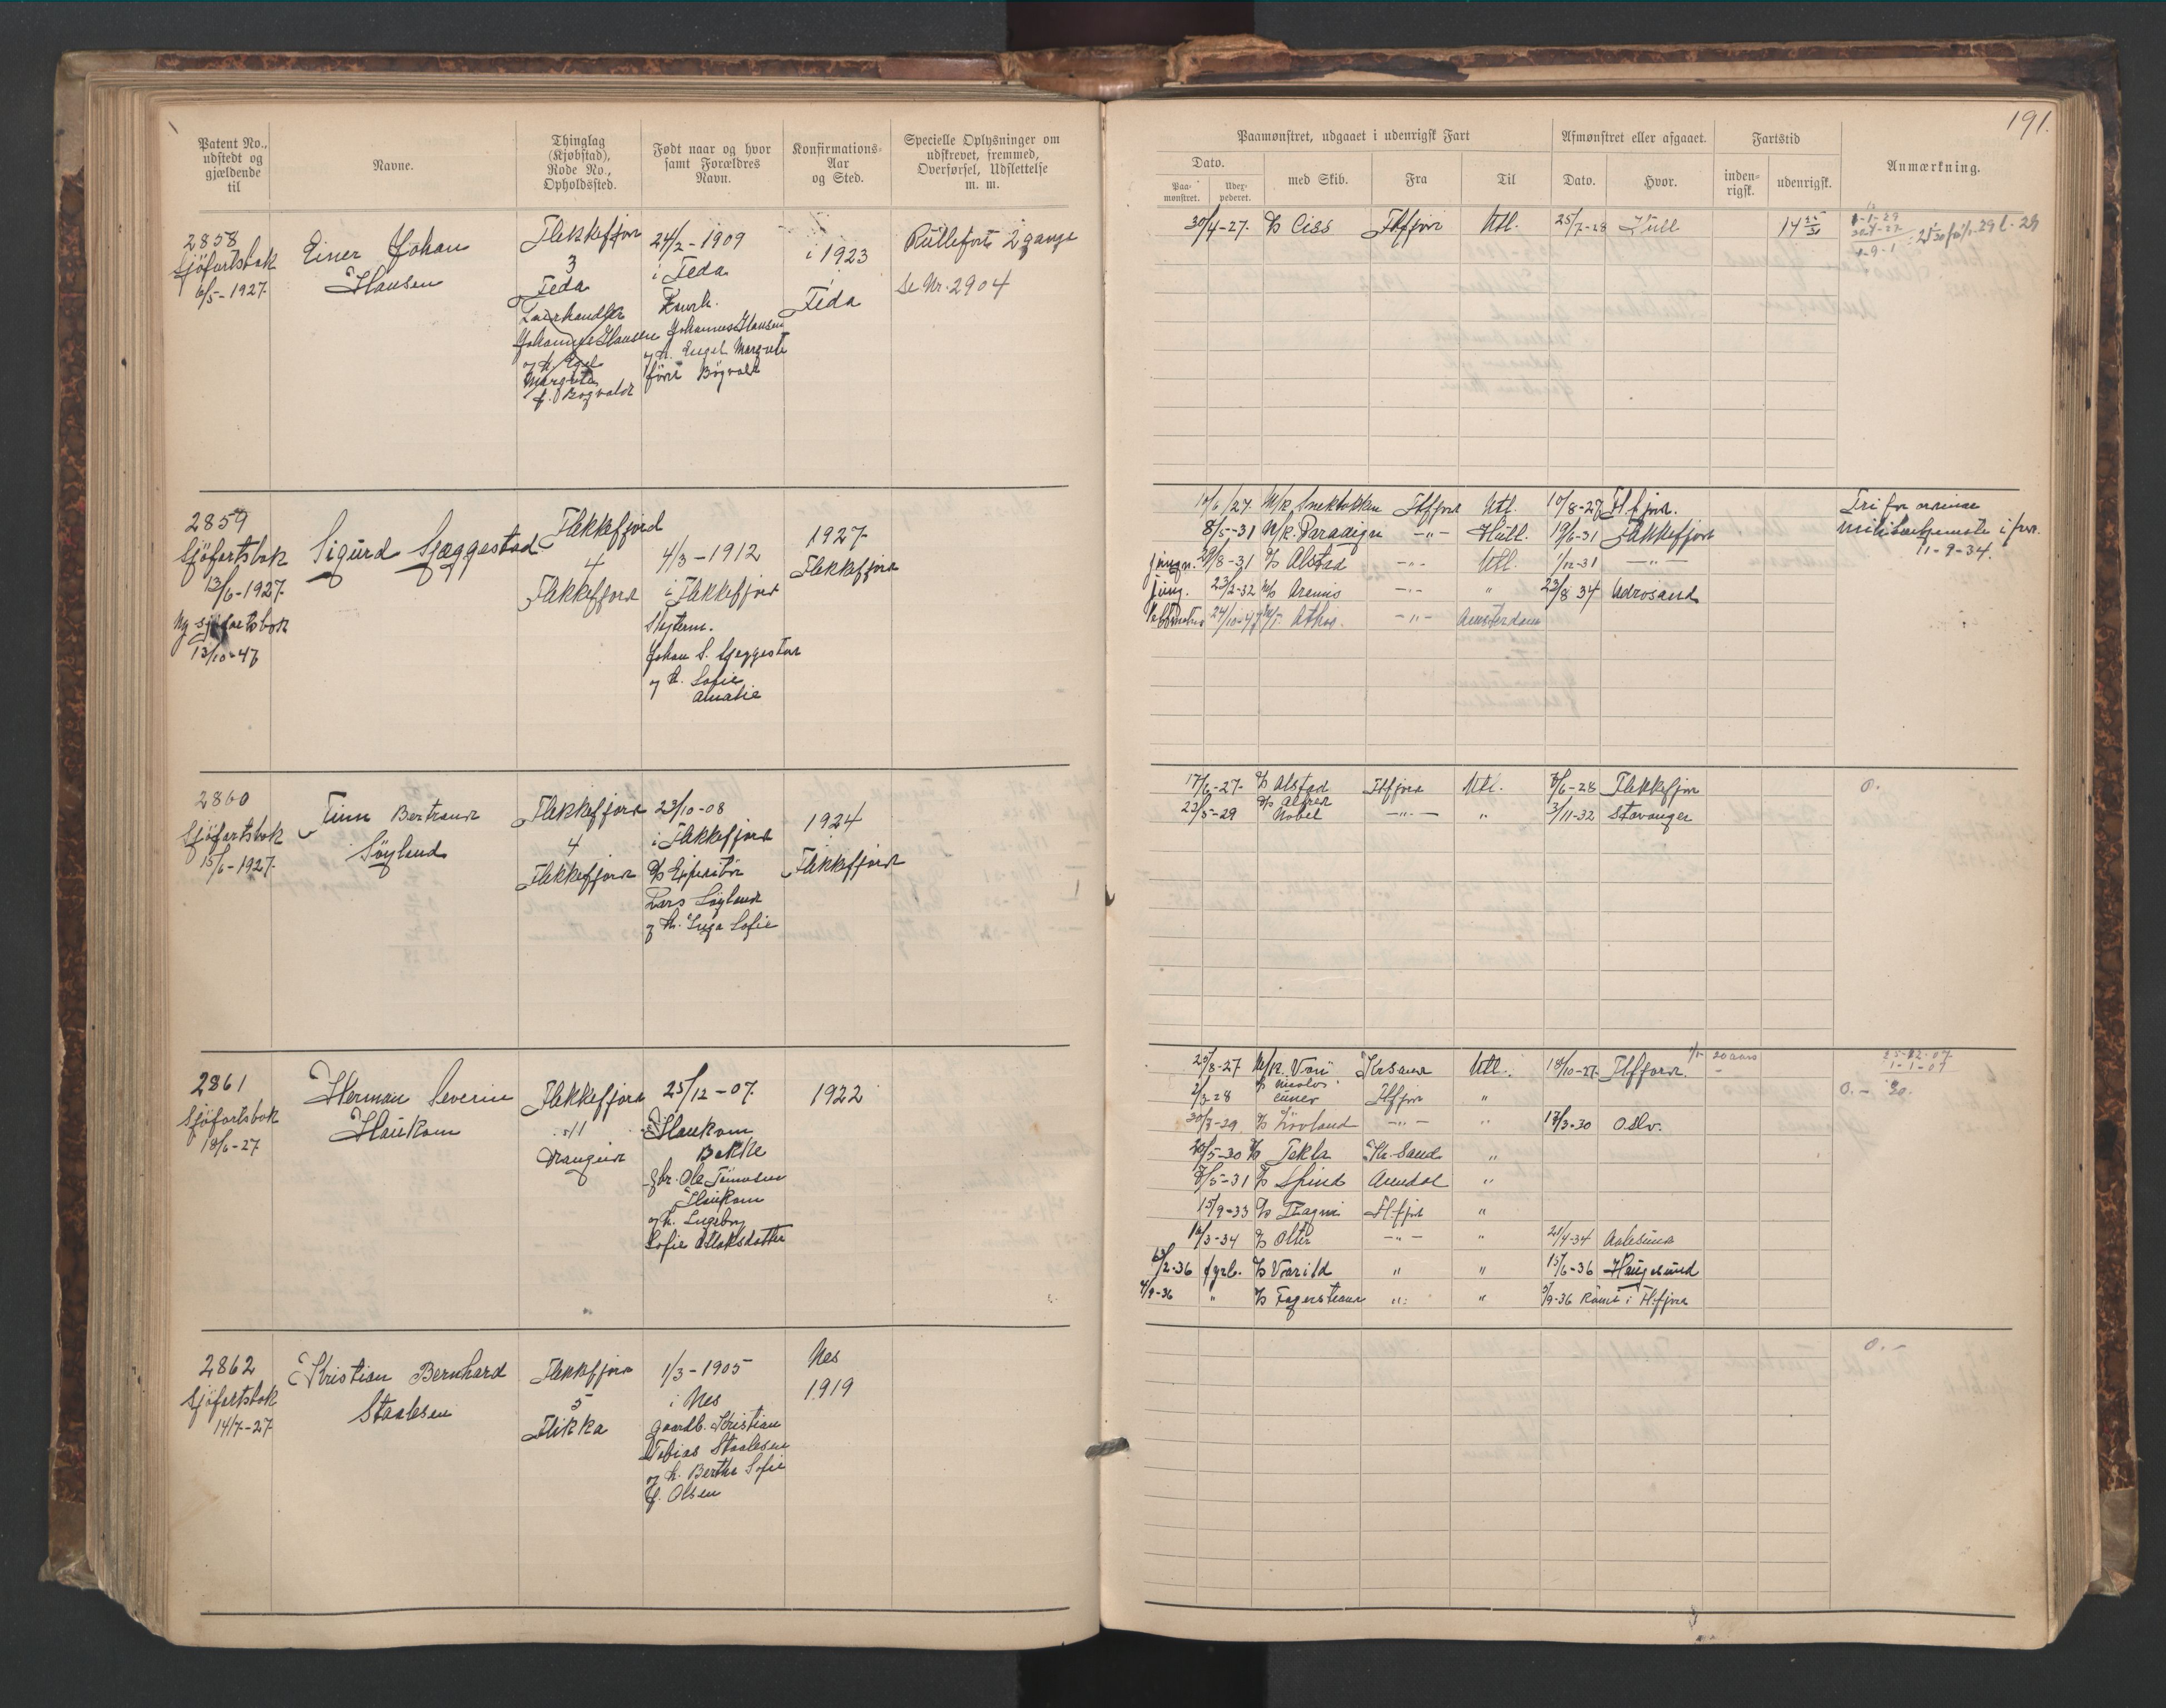 191.
Patent No., udstedt og gjældende til
Navne.
Thinglag (Kjøbstad), Rode No., Opholdssted.
Født naar og hvor samt Forældres Navn.
Konfirmations-Aar og Sted.
Specielle Oplysninger om udskrevet, fremmed, Overførsel, Udslettelse m. m.
Paamønstret, udgaaet i udenrigsk Fart
Dato.
Paa-mønstret.
Udex-pederet.
med Skib.
Fra
Til
Afmønstret eller afgaaet.
Dato.
Hvor.
Fartstid
inden-rigsk.
udenrigsk.
Anmærkning.
2858
Sjöfartsbok
6/5-1927.
Einer Johan
Hansen
Flekkefjord
3
Feda
Johannes Hansen
Margrete
f. Bögvald
24/2-1909
i Feda
Johannes Hansen
og h. Engel Margrete
född Bögvald
i 1923
Feda
Rulleført 2 gange
Se Nr. 2904
30/4-27. D/S Ciss Flfjord Utl. 25/7-28 Hull
2859
Sjöfartsbok
13/6-1927.
Ny sjøfartsbok
13/10-47
Sigurd Sjæggestad
Flekkefjord
4
Flekkefjord
4/3-1912
i Flekkefjord
Johan S. Sjeggestad
og h. Sofie
Amalie
1927
Flekkefjord
10/6/27. M/k Flfjord Utl. 10/8-27 Flfjord.
8/5-31 M/k. Paradign -"- Hull. 19/6-31 Flekkefjord
jungm. 29/8-31 D/S Alstad -"- Utl. 1/12-31 -"-
jung. 23/2-32 Aramis -"- " 23/8 34
24/10-47 M/T Athos. -"- Amsterdam
Fri for ordinær
militærtjeneste i fred.
11-9-34.
2860
Sjöfartsbok
15/6-1927.
Finn Bertrand
Söyland
Flekkefjord
4
Flekkefjord
23/10-08
i Flekkefjord
D/S Expeditör
Lars Söyland
og h. Inga Sofie
1924
Flekkefjord
17/6-27. D/S Alstad Flfjord Utl. 8/6-28 Flekkefjord
23/5-29 D/S Alfred Nobel -"- " 3/11-32 Stavanger
0.
2861
Sjöfartsbok
18/6-27
Herman Severin
Haukom
Flekkefjord
11
Drangeid
25/12-07.
Haukom
Bakke
gbr. Ole Tömmesen
Haukom
og h. Ingeborg
Sofie Atlaksdatter
1922
25/8-27 M/k. Vari Krsand Utl. 18/10-27. Flfjord.
2/3-28 Flfjord "
30/3-29 D/S Lövland -"- " 13/3-30 Oslo.
20/5-30 D/S Tekla Kr.Sand "
8/5-31 D/S Spind Arendal "
15/9-33 D/S Flfjord "
16/3-34 D/S Olter -"- " 21/4-34 Aalesund
13/2-36 fyrb. D/S Varild " " 15/6-36 Haugesund
4/9-36 " D/S Fagerstrand " " 5/9-36 Römt i Flfjord
25-12-07
1-1-07
0.-
2862
Sjöfartsbok
14/7-27
Kristian Bernhard
Staalesen
Flekkefjord
5
Flikka
1/3-1905
i Nes
gaardb. Kristian
Tobias Staalesen
og h. Berthe Sofie
f. Olsen
Nes
1919
0.-